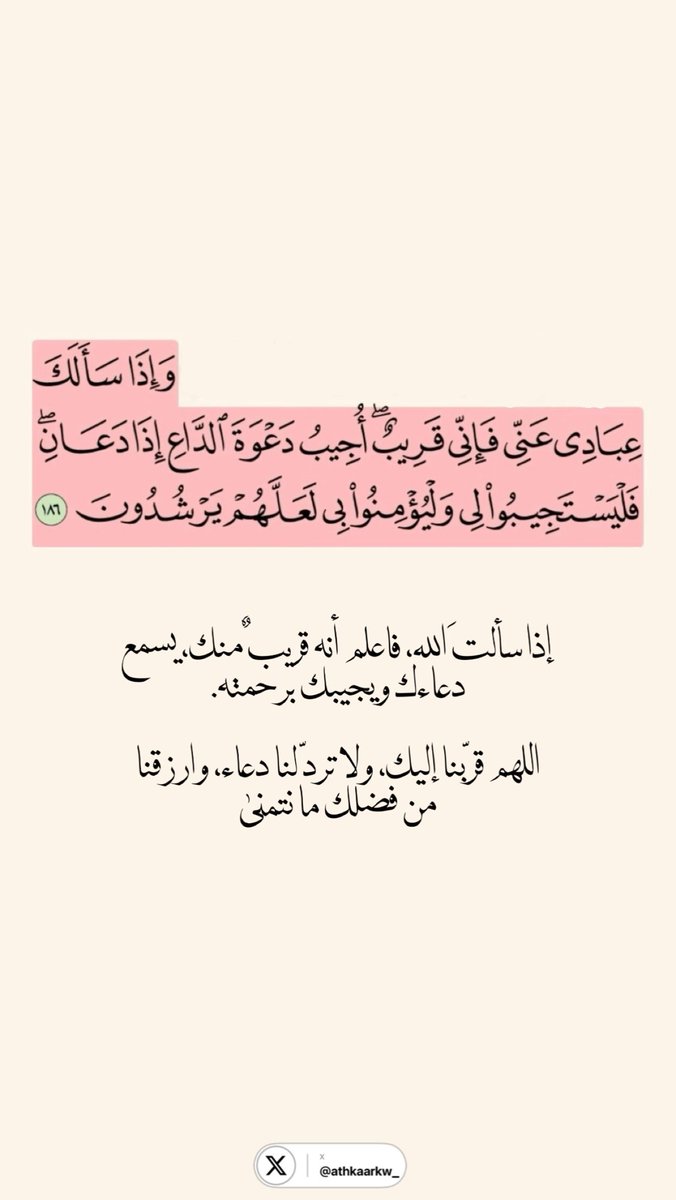 وَإِذَا سَأَلَكَ
عِبَادِى عَنِّى فَإِنِّى قَرِيبٌۖ أُجِيبُ دَعْوَةَ ٱلدَّاعِ إِذَا دَعَانِۖ
فَلْيَسْتَجِيبُوا۟ لِى وَلْيُؤْمِنُوا۟ بِى لَعَلَّهُمْ يَرْشُدُونَ ١٨٦
إذا سألت َالله، فاعلم أنه قريب ٌمنك، يسمع
دعاءك ويجيبك برحمته.
اللهم قرّبنا إليك، ولا تردّ لنا دعاء، وارزقنا
من فضلك ما نتمنىٰ
X
@athkaarkw_